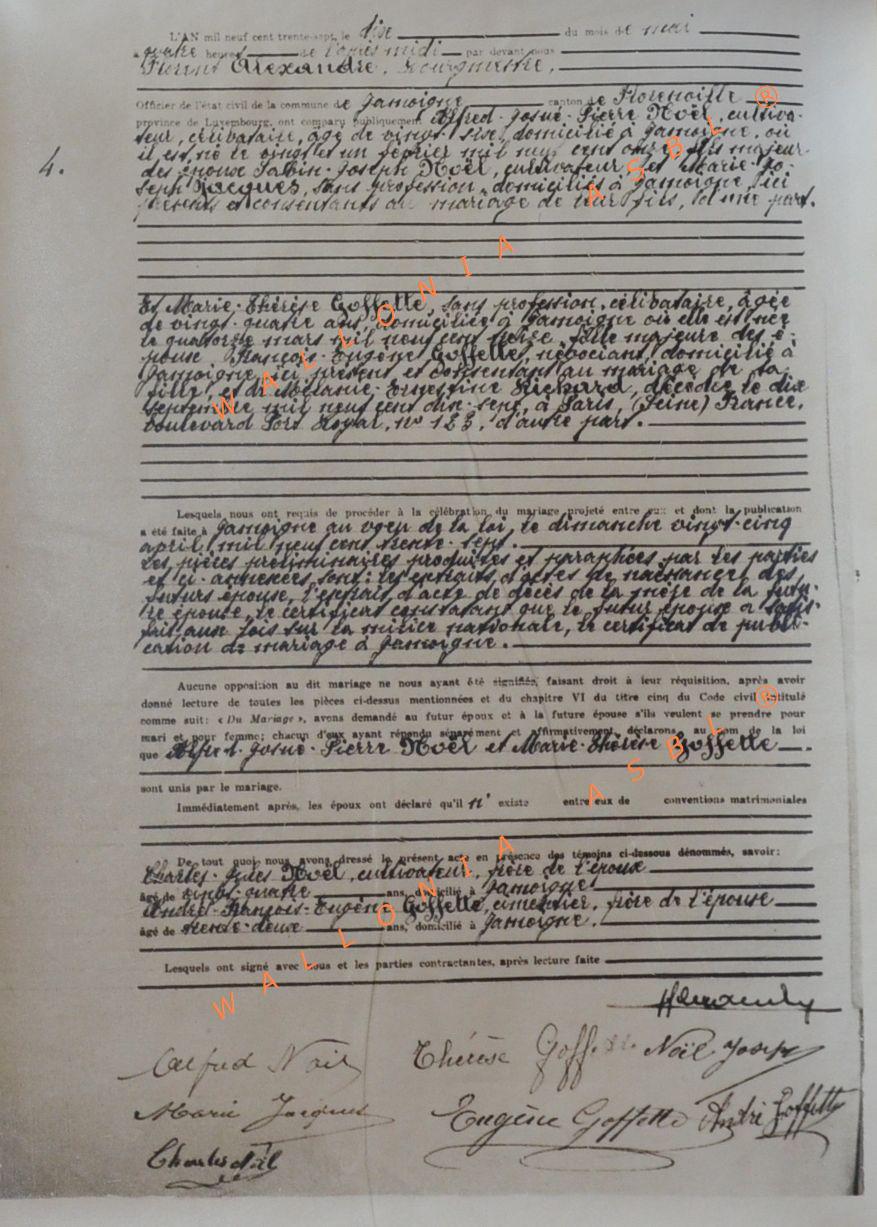 L'AN mil neuf cent trente-sept, le dix du mois de mai
à quatre heures de l'après midi par devant nous
Florent Alexandre, Bourgmestre,
Officier de l'état civil de la commune de Jamoigne canton de Florenville
province de Luxembourg, ont comparu publiquement Alfred-Josué-Pierre Noël, cultiva-
teur, célibataire, âgé de vingt-six, domicilié à Jamoigne, où
il est né le vingt et un février mil neuf cent onze, fils majeur
4. des époux Joseph Noël, cultivateur et Marie-Jo-
seph Jacques, sans profession, domiciliés à Jamoigne, ici
présents et consentants au mariage de leur fils, d'une part.
Et Marie-Thérèse Goffette, sans profession, célibataire, âgée
de vingt-quatre ans, domiciliée à Jamoigne où elle est née
le quatorze mars mil neuf cent treize, fille majeure des é-
poux François-Eugène Goffette, négociant, domicilié à
Jamoigne, ici présent et consentant au mariage de sa
fille, et de Mélanie-Ernestine Richard, décédée le dix
septembre mil neuf cent dix-sept, à Paris, (Seine) France,
boulevard Port Royal, n° 123, d'autre part.
Lesquels nous ont requis de procéder à la célébration du mariage projeté entre eux et dont la publication
a été faite à Jamoigne au voeu de la loi, le dimanche vingt-cinq
april, mil neuf cent trente-sept.
Les pièces préliminaires produites et paraphées par les parties
et ci-annexées, sont: les extraits d'actes de naissance des
futurs époux, l'extrait d'acte de décès de la mère de la futu-
re épouse, le certificat constatant que le futur époux a satis-
fait aux lois sur la milice nationale, le certificat de publi-
cation de mariage à Jamoigne.
Aucune opposition au dit mariage ne nous ayant été signifiée, faisant droit à leur réquisition, après avoir
donné lecture de toutes les pièces ci-dessus mentionnées et du chapitre VI du titre cinq du Code civil intitulé
comme suit: « Du Mariage », avons demandé au futur époux et à la future épouse s'ils veulent se prendre pour
mari et pour femme; chacun d'eux ayant répondu séparément et affirmativement, déclarons, au nom de la loi
que Alfred-Josué-Pierre Noël et Marie-Thérèse Goffette
sont unis par le mariage.
Immédiatement après, les époux ont déclaré qu'il n'existe entre eux de conventions matrimoniales
De tout quoi nous avons dressé le présent acte en présence des témoins ci-dessous dénommés, savoir:
Charles-Jules Noël, cultivateur, frère de l'époux
âgé de vingt-quatre ans, domicilié à Jamoigne
André-François-Eugène Goffette, cimentier, frère de l'épouse
âgé de trente-deux ans, domicilié à Jamoigne.
Lesquels ont signé avec nous et les parties contractantes, après lecture faite
Alfred Noël Thérèse Goffette Noël Joseph
Marie Jacques Eugène Goffette André Goffette
Charles Noël
WALLONIA ASBL ®
WALLONIA ASBL ®